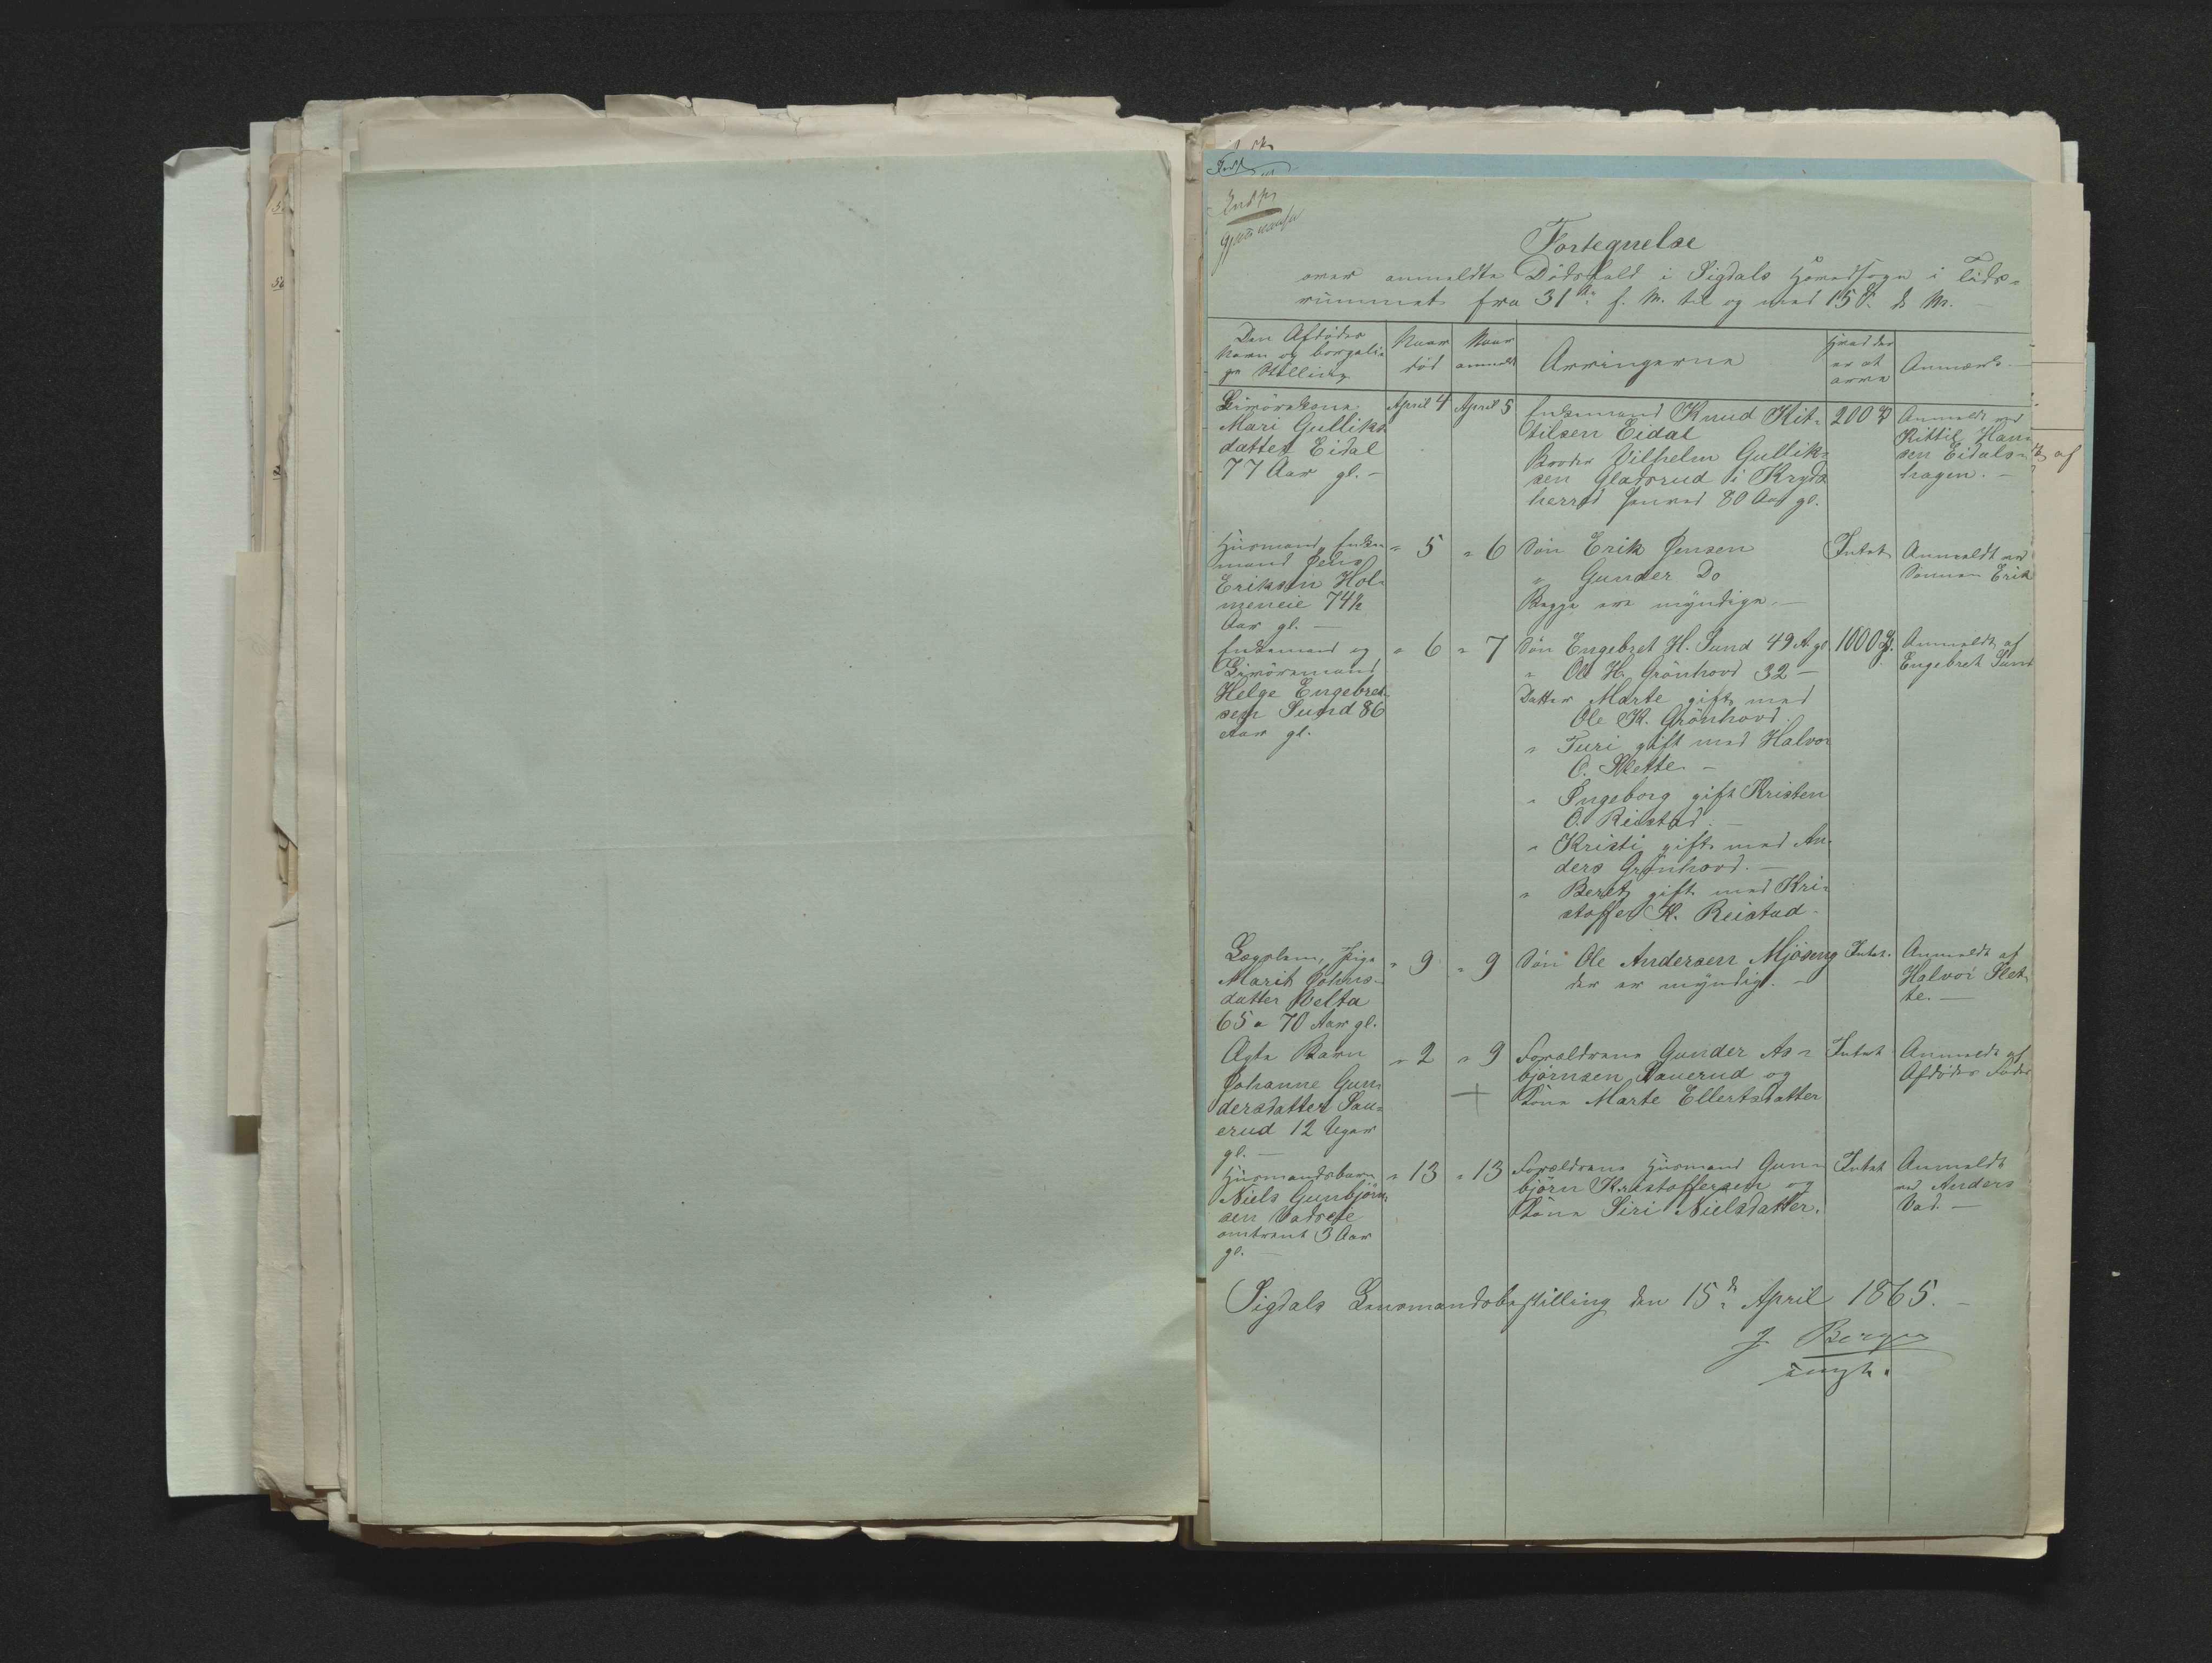 Fortegnelse
over anmeldte Dödsfald i Sigdals Hovedsogn i Tids-
rummet fra 31te f. M. til og med 15de d. M.
Den Afdödes
Navn og borgerli-
ge Stilling
Naar
död
Naar
anmeldt
Arvingerne
Hvad der
er at
arve
Anmærk.
Livörekone
Mari Gulliks-
datter Eidal
77 Aar gl. -
April 4
April 5
Enkemand Knud Kit-
tilsen Eidal
Broder Vilhelm Gullik-
sen Gladsrud i Kryds-
herred henved 80 Aar gl.
200 Spd
Anmeldt ved
Kittil Han-
sen Eidals-
hagen. -
Husmand, Enke-
mand Jens
Eriksen Hol-
meneie 74½
Aar gl. -
" 5
" 6
Sön Erik Jensen
" Gunder Do
Begge ere myndige. -
Intet
Anmeldt ved
Sönnen Erik
Enkemand og
Livöremand
Helge Engebret-
sen Sund 86
Aar gl.
" 6
" 7
Sön Engebret H. Sund 49 A. gl.
" Ole H. Grönhovd 32 -
Datter Marte gift med
Ole K. Grönhovd.
" Turi gift med Halvor
O. Slette -
" Ingeborg gift Kristen
O. Reistad. -
" Kristi gift med An-
ders Grönhovd. -
" Beret gift med Kri-
stoffer H. Reistad.
1000 Spd.
Anmeldt af
Engebret Sund
Lægslem, Pige
Marit Johns-
datter Velta
65 a 70 Aar gl.
" 9
" 9
Sön Ole Andersen Mjöseng
der er myndig. -
Intet.
Anmeldt af
Halvor Slet-
te. -
Ægte Barn
Johanne Gun-
dersdatter Sau-
erud 12 Uger
gl. -
" 2
" 9
Forældrene Gunder As-
björnsen Sauerud og
Kone Marte Ellertsdatter
Intet
Anmeldt af
Afdödes Fader
Husmandsbarn
Niels Gunbjörn-
sen Vadseie
omtrent 3 Aar
gl. -
" 13
" 13
Forældrene Husmand Gun-
björn Kristoffersen og
Kone Siri Nielsdatter.
Intet
Anmeldt
ved Anders
Vad. -
Sigdals Lensmandsbestilling den 15de April 1865. -
J Berger